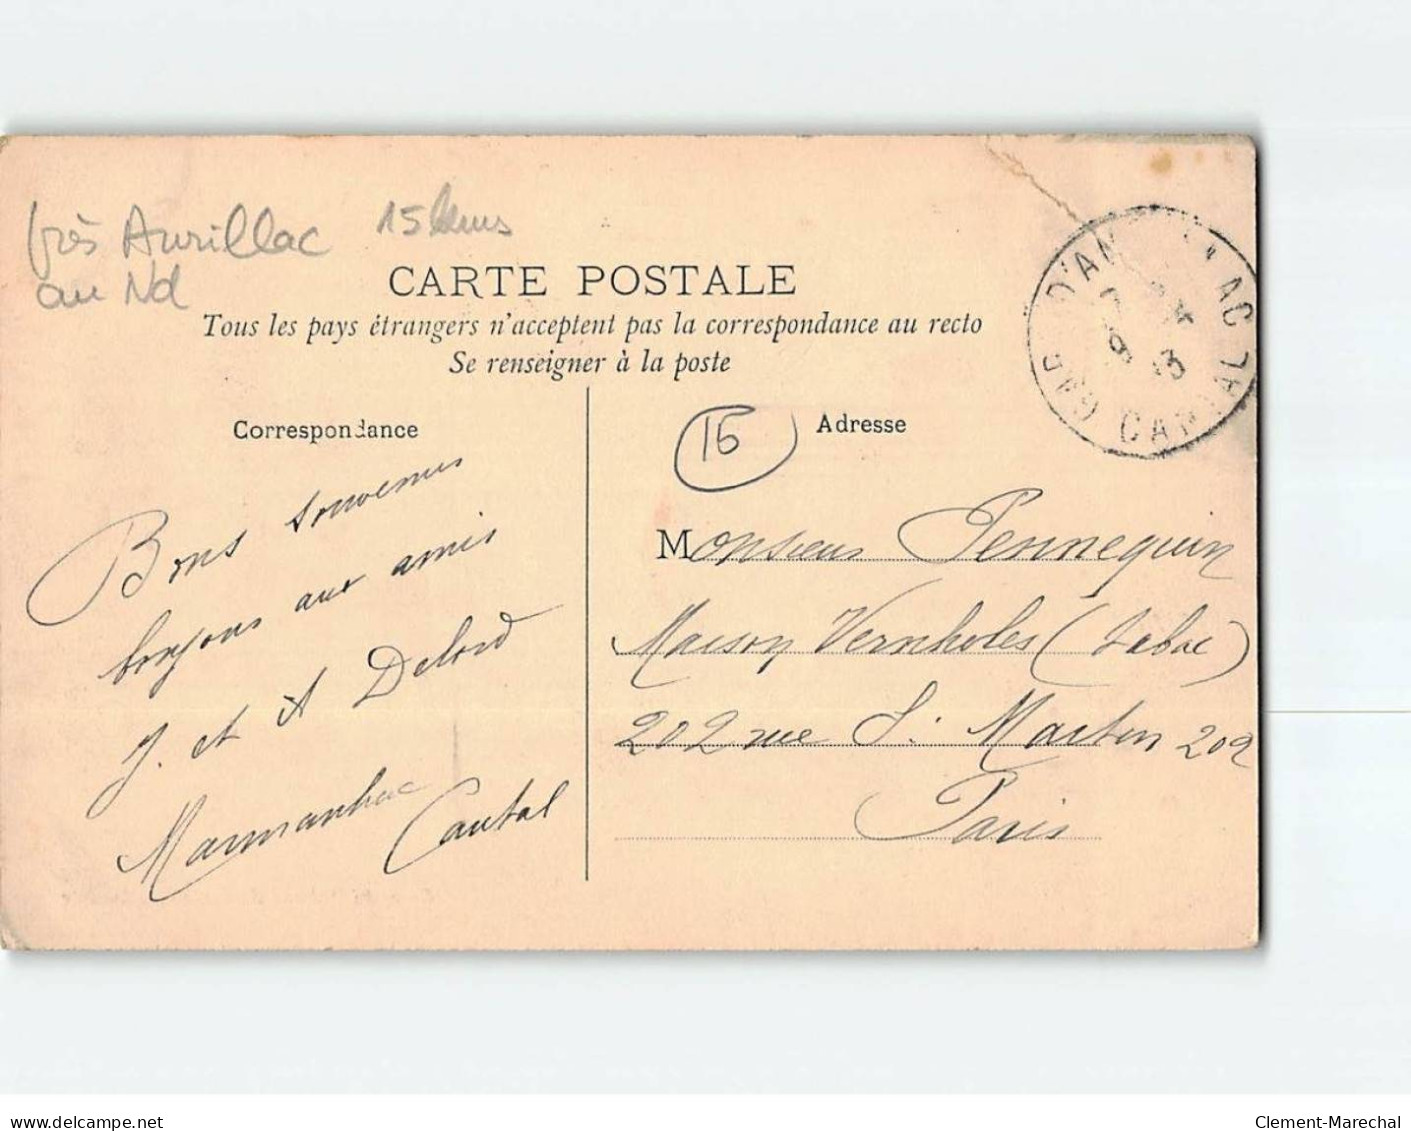 près Aurillac 15 kms
au Nd
CARTE POSTALE
Tous les pays étrangers n'acceptent pas la correspondance au recto
Se renseigner à la poste
GARE D'A AC
CANTAL
Correspondance
Adresse
Bons souvenirs
bonjour aux amis
J. et A Delord
Marmanhac
Cantal
16
Monsieur Pennequin
Maison Vernholes (Tabac)
202 rue S. Martin 202
Paris
delcampe.net
Clement-Marechal